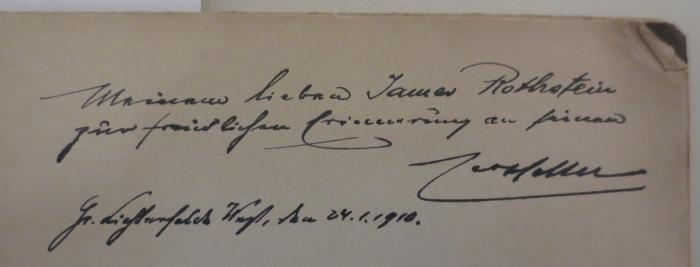 Meinem lieben James Rothstein
zur freundlichen Erinnerung an seinen
Gr. Lichterfelde West, den 24.1.1910.